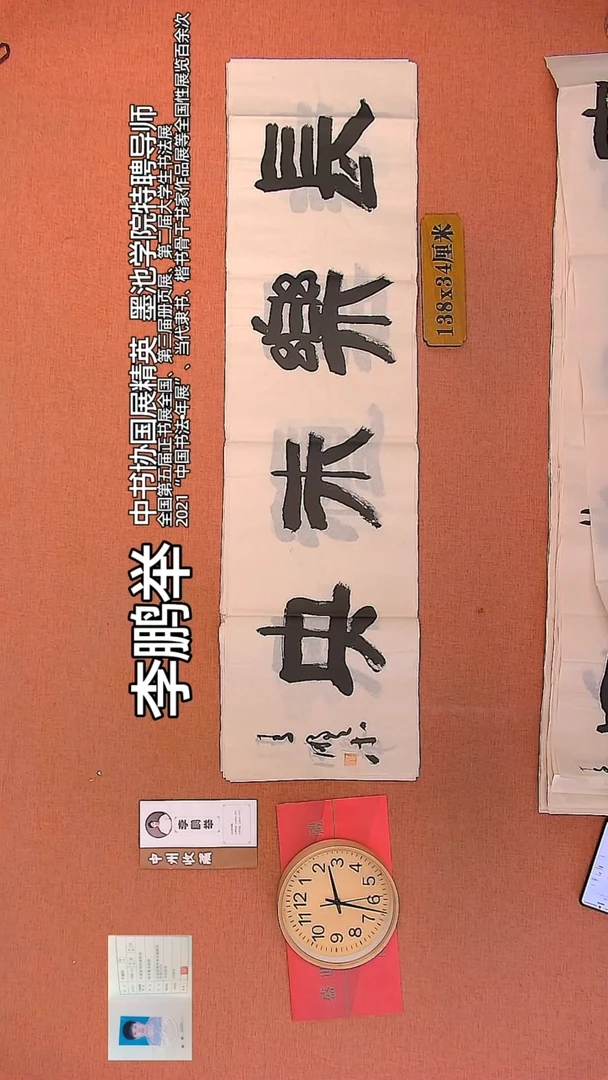 李鹏举
中书协国展精英 墨池学院特聘导师
全国第五届正书展全国、第三届册页展、第二届大学生书法展
2021“中国书法年展”、当代隶书、楷书骨干书家作品展等全国性展览百余次
長樂未央
138x34厘米
李鹏举
中州收藏
12 1 2 3 4 5 6 7 8 9 10 11